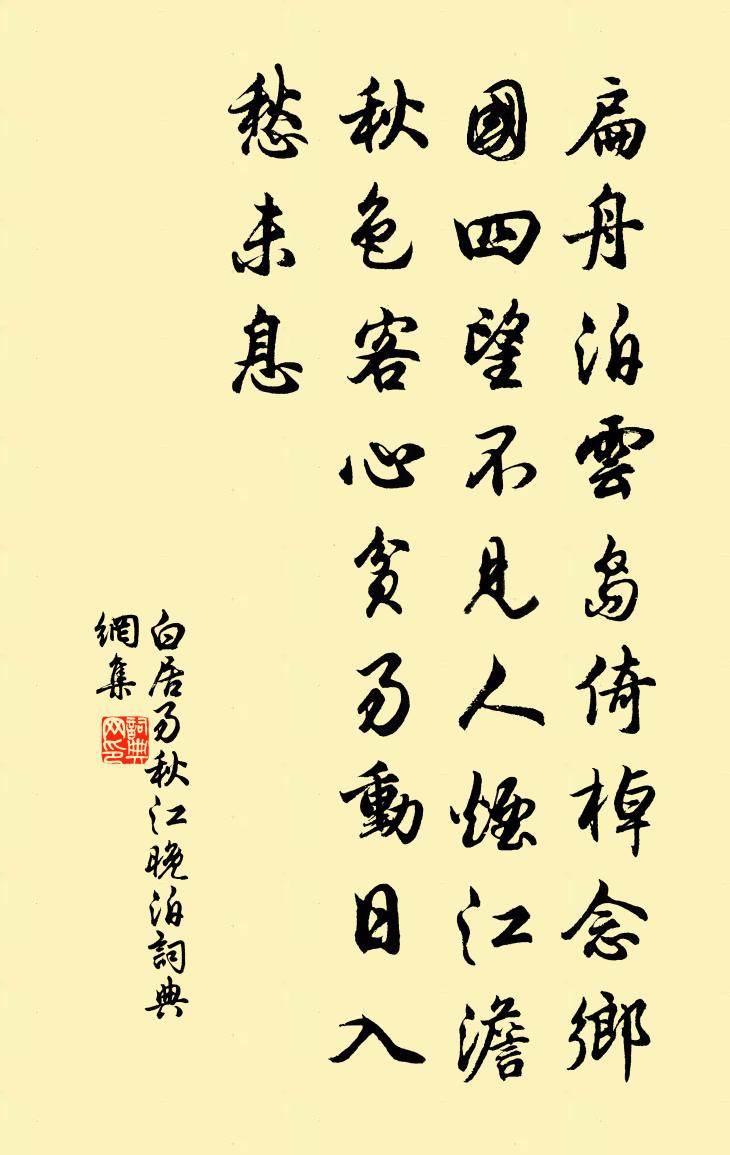 扁舟泊雲島倚棹念鄉
國四望不見人煙江澹
秋色客心貧易動日入
愁未息
白居易秋江晚泊詞典
網集
詞典
网印